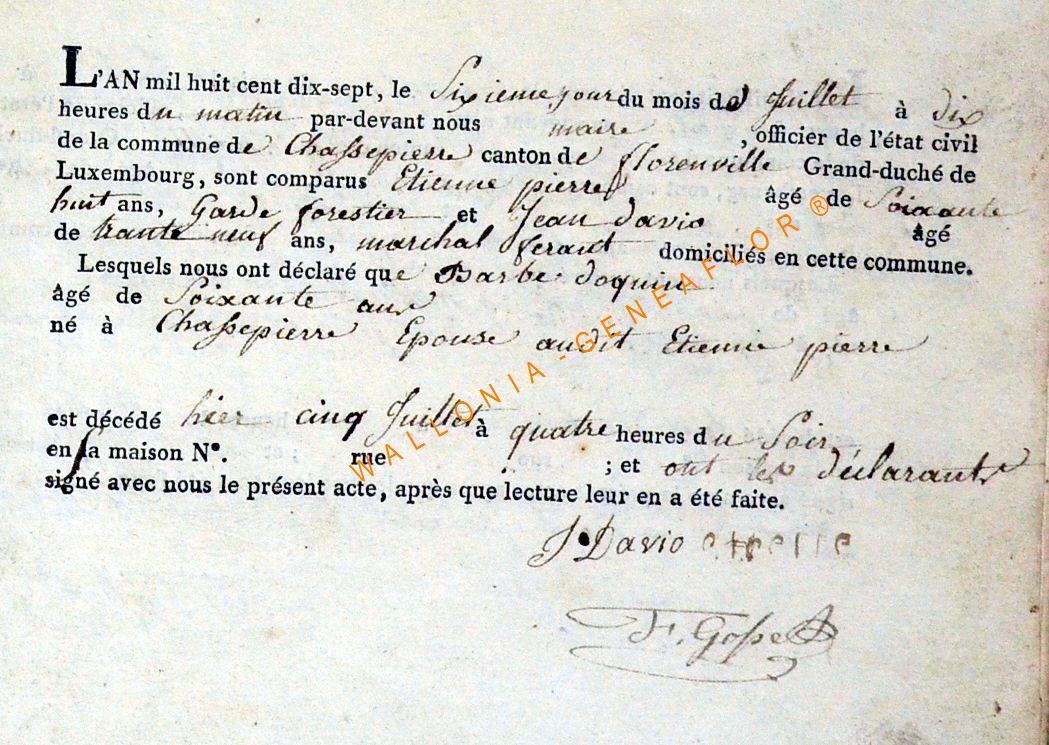 L'AN mil huit cent dix-sept, le Sixieme jour du mois de Juillet à dix
heures du matin par-devant nous maire, officier de l'état civil
de la commune de Chassepierre canton de florenville Grand-duché de
Luxembourg, sont comparus Etienne pierre âgé de Soixante
huit ans, Garde forestier et Jean davio âgé
de trante neuf ans, marchal ferant domiciliés en cette commune.
Lesquels nous ont déclaré que Barbe doquin
âgé de Soixante ans
né à Chassepierre Epouse audit Etienne pierre
est décédé hier cinq Juillet à quatre heures du Soir
en sa maison N°. rue ; et ont les déclarants
signé avec nous le présent acte, après que lecture leur en a été faite.
J Davio
F. Gosse
WALLONIA - GENEAFLOR ®